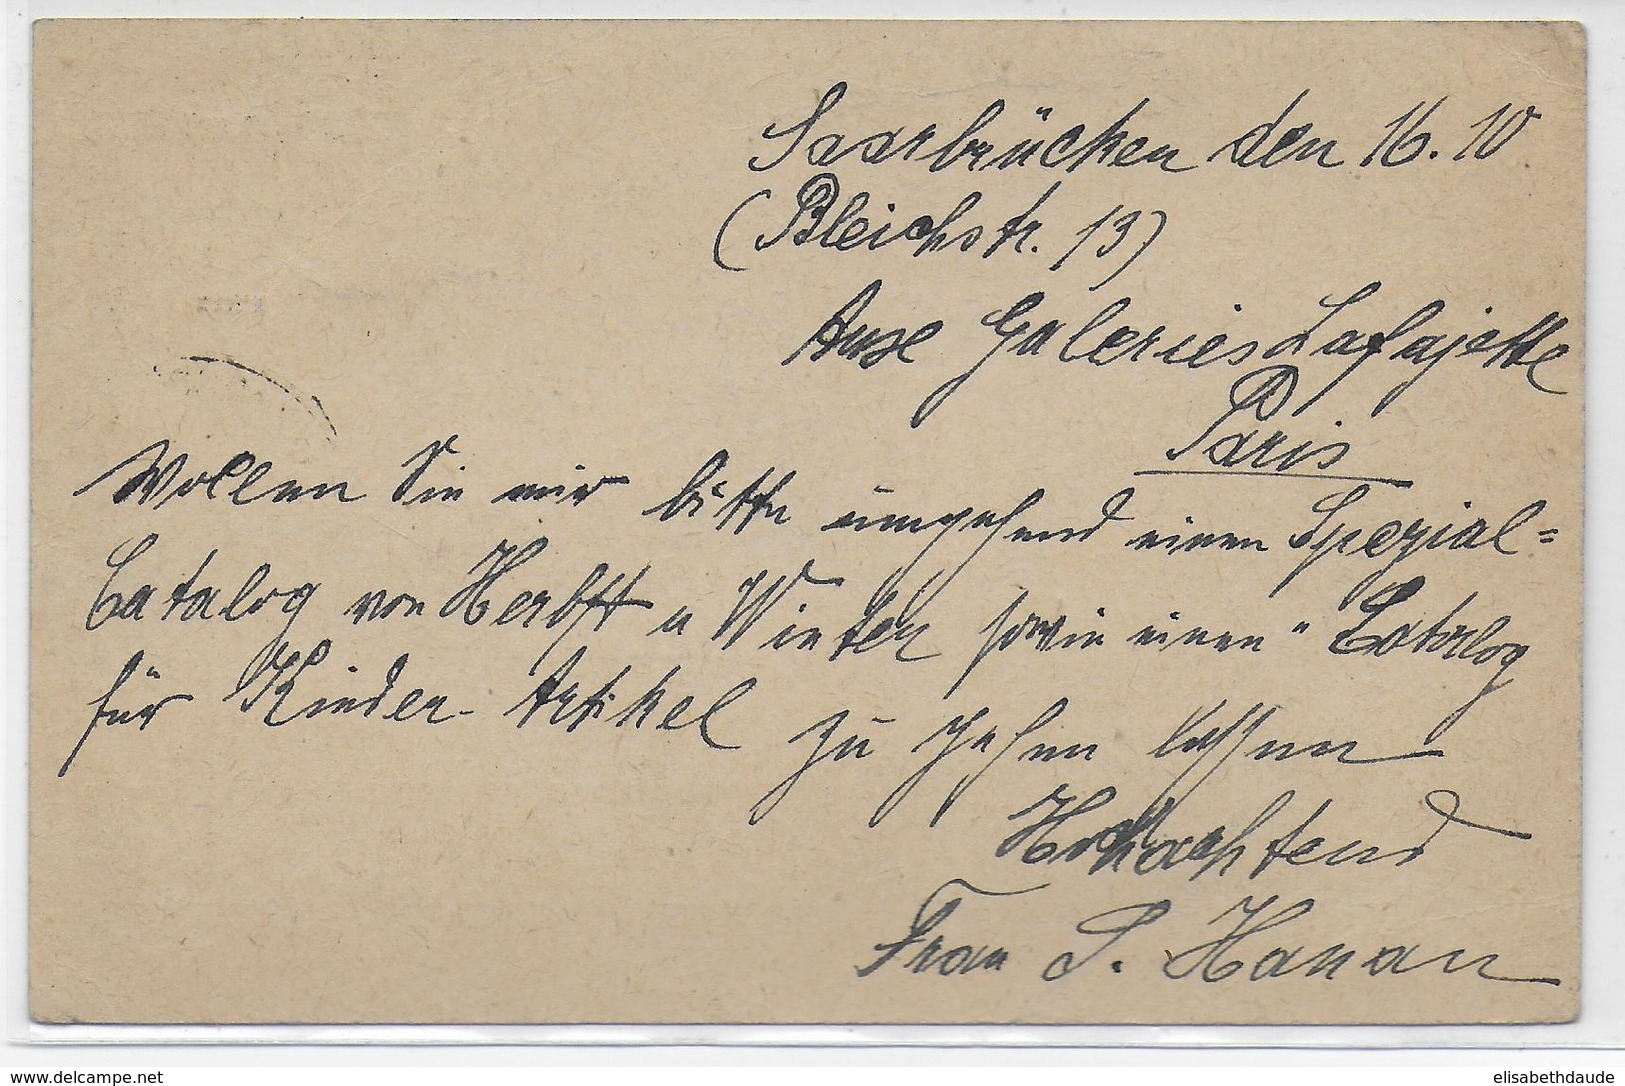 Saarbrücken den 16. 10
(Bleichstr. 13)
Galeries Lafajette
Paris
Wollen Sie mir bitte umgehend einen Spezial=
Catalog von Herbst u Winter sowie einen " Catalog
für Kinder-Artikel zu gehen lassen
Hochachtend
Frau S. Hanau
www.delcampe.net
elisabethdaude